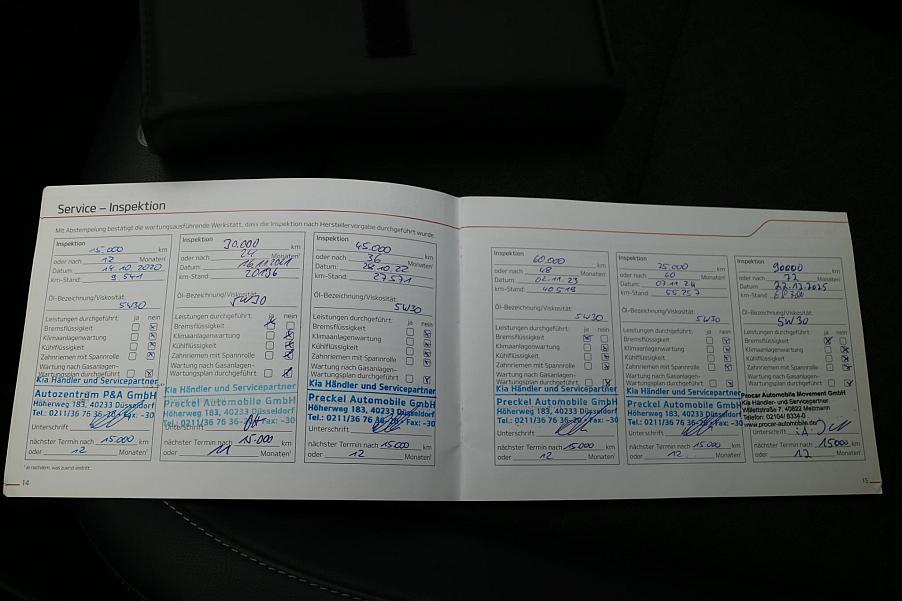 Service – Inspektion
Mit Abstempelung bestätigt die wartungsausführende Werkstatt, dass die Inspektion nach Herstellervorgabe durchgeführt wurde.
Inspektion
15.000 km
oder nach 12 Monaten¹
Datum: 14.10.2020
km-Stand: 9541
Öl-Bezeichnung/Viskosität:
5W30
Leistungen durchgeführt: ja nein
Bremsflüssigkeit
Klimaanlagenwartung
Kühlflüssigkeit
Zahnriemen mit Spannrolle
Wartung nach Gasanlagen-
Wartungsplan durchgeführt
Kia Händler und Servicepartner
Autozentrum P&A GmbH
Höherweg 183, 40233 Düsseldorf
Tel.: 0211/36 76 36-20 · Fax: -30
Unterschrift
nächster Termin nach 15000 km
oder 12 Monaten¹
Inspektion 30.000 km
oder nach 24 Monaten¹
Datum: 16.11.2021
km-Stand: 20196
Öl-Bezeichnung/Viskosität:
5W30
Leistungen durchgeführt: ja nein
Bremsflüssigkeit
Klimaanlagenwartung
Kühlflüssigkeit
Zahnriemen mit Spannrolle
Wartung nach Gasanlagen-
Wartungsplan durchgeführt
Kia Händler und Servicepartner
Preckel Automobile GmbH
Höherweg 183, 40233 Düsseldorf
Tel.: 0211/36 76 36-20 · Fax: -30
Unterschrift
nächster Termin nach 15.000 km
oder Monaten¹
Inspektion
45.000 km
oder nach 36 Monaten¹
Datum: 22
km-Stand: 27571
Öl-Bezeichnung/Viskosität:
5W30
Leistungen durchgeführt: ja nein
Bremsflüssigkeit
Klimaanlagenwartung
Kühlflüssigkeit
Zahnriemen mit Spannrolle
Wartung nach Gasanlagen-
Wartungsplan durchgeführt
Kia Händler und Servicepartner
Preckel Automobile GmbH
Höherweg 183, 40233 Düsseldorf
Tel.: 0211/36 76 36-20 · Fax: -30
Unterschrift
nächster Termin nach 15000 km
oder 12 Monaten¹
¹ je nachdem, was zuerst eintritt.
14
Inspektion
60.000 km
oder nach 48 Monaten¹
Datum: 02.11.23
km-Stand: 40519
Öl-Bezeichnung/Viskosität:
5W30
Leistungen durchgeführt: ja nein
Bremsflüssigkeit
Klimaanlagenwartung
Kühlflüssigkeit
Zahnriemen mit Spannrolle
Wartung nach Gasanlagen-
Wartungsplan durchgeführt
Kia Händler und Servicepartner
Preckel Automobile GmbH
Höherweg 183, 40233 Düsseldorf
Tel.: 0211/36 76 36-20 · Fax: -30
Unterschrift
nächster Termin nach 15000 km
oder 12 Monaten¹
Inspektion
75.000 km
oder nach 60 Monaten¹
Datum: 07.11.24
km-Stand: 55757
Öl-Bezeichnung/Viskosität:
5W30
Leistungen durchgeführt: ja nein
Bremsflüssigkeit
Klimaanlagenwartung
Kühlflüssigkeit
Zahnriemen mit Spannrolle
Wartung nach Gasanlagen-
Wartungsplan durchgeführt
Kia Händler und Servicepartner
Preckel Automobile GmbH
Höherweg 183, 40233 Düsseldorf
Tel.: 0211/36 76 36-20 · Fax: -30
Unterschrift
nächster Termin nach 15000 km
oder 12 Monaten¹
Inspektion
90000 km
oder nach 72 Monaten¹
Datum: 22.12.2025
km-Stand:
Öl-Bezeichnung/Viskosität:
5W30
Leistungen durchgeführt: ja nein
Bremsflüssigkeit
Klimaanlagenwartung
Kühlflüssigkeit
Zahnriemen mit Spannrolle
Wartung nach Gasanlagen-
Wartungsplan durchgeführt
Procar Automobile Movement GmbH
Kia Händler- und Servicepartner
Willettstraße 7, 40822 Mettmann
Telefon: 02104/ 8334-0
www.procar-automobile.de
Unterschrift i.A.
nächster Termin nach 15000 km
oder 12 Monaten¹
15